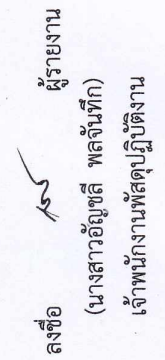 ลงชื่อ ผู้รายงาน
(นางสาวอัญชลี พลจันทึก)
เจ้าพนักงานพัสดุปฏิบัติงาน